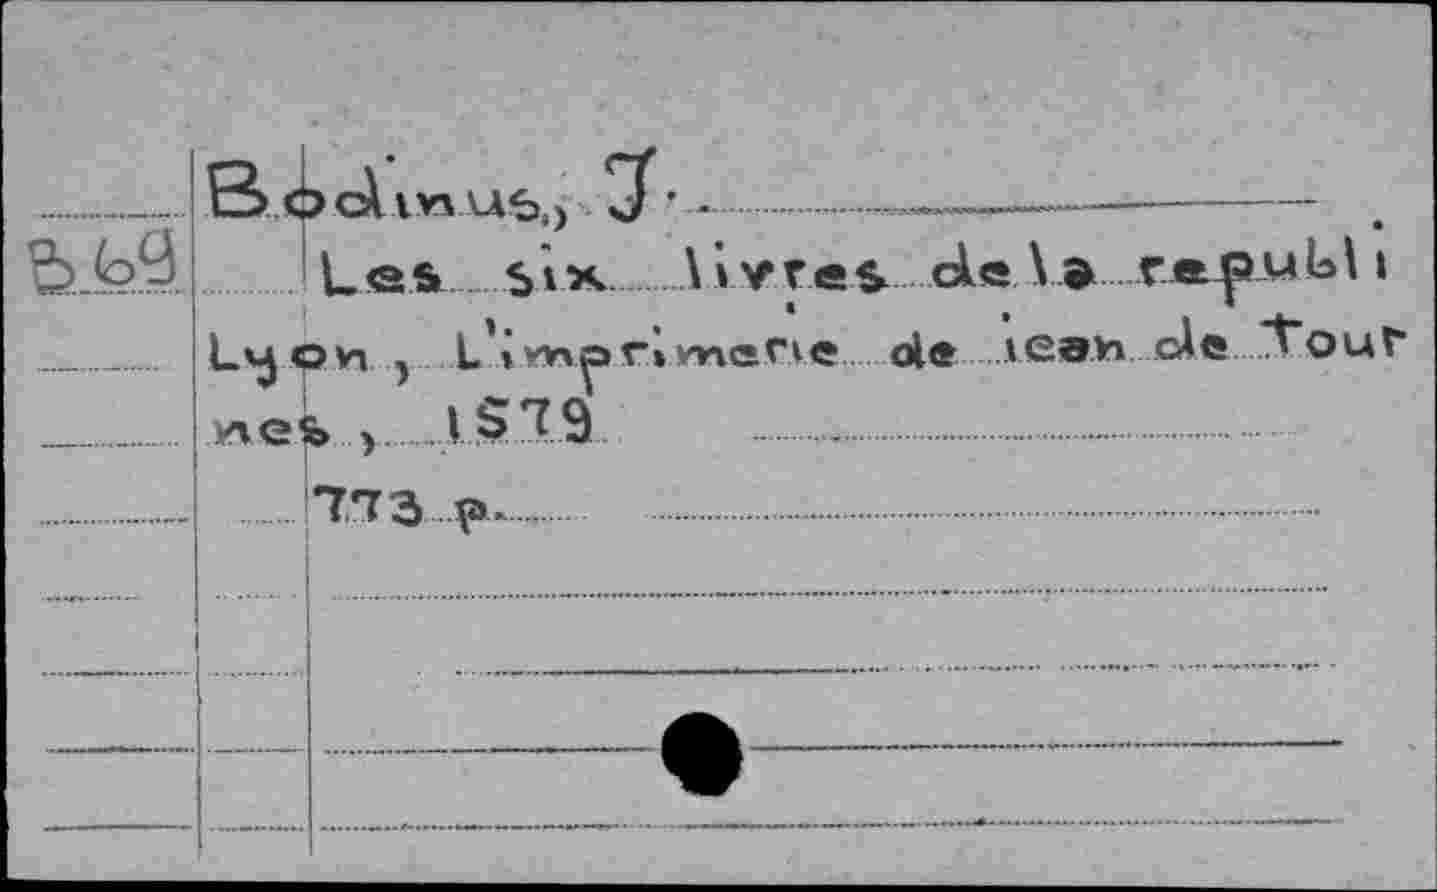 Bodinus, J.
B69 Les six livres de la republi
Lyon, L'imprimerie de iean de Tour
nes, 1579
773 p.